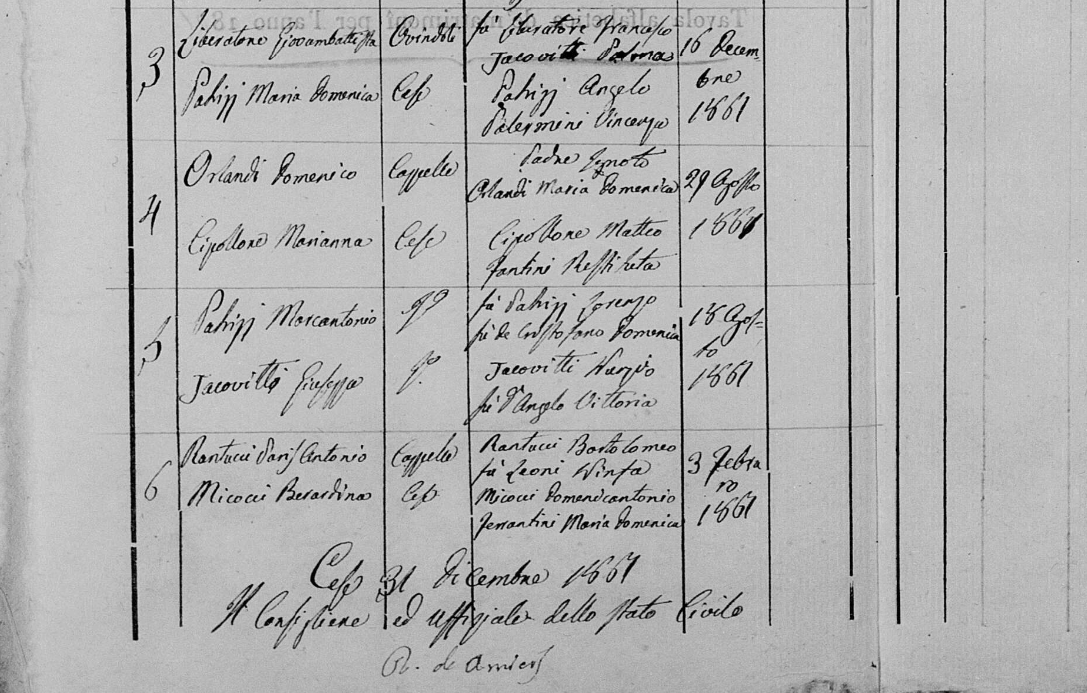 3 Liberatore Giovambattista Ovindoli fù Liberatore Francesco 16 Decem=
Jacovitti Palma bre
Patrizj Maria Domenica Cese Patrizj Angelo 1861
Palermini Vincenza
4 Orlandi Domenico Cappelle Padre Ignoto 29 Agosto
Orlandi Maria Domenica
Cipollone Marianna Cese Cipollone Matteo 1861
Fantini Restituta
5 Patrizj Marcantonio fù Patrizj Lorenzo 18 Agos=
fù de Cristofano Domenica to
Jacovitti Giuseppa Jacovitti Nunzio 1861
fù d'Angelo Vittoria
6 Rantucci Antonio Cappelle Rantucci Bartolomeo 3 Febra
fù Leoni Ninfa ro
Micocci Berardina Cese Micocci Domenicantonio 1861
Ferrantini Maria Domenica
Cese 31 Dicembre 1861
Il Consigliere ed uffiziale dello Stato Civile
de Amicis
Tavola alfabetica di matrimonî per l'anno 18